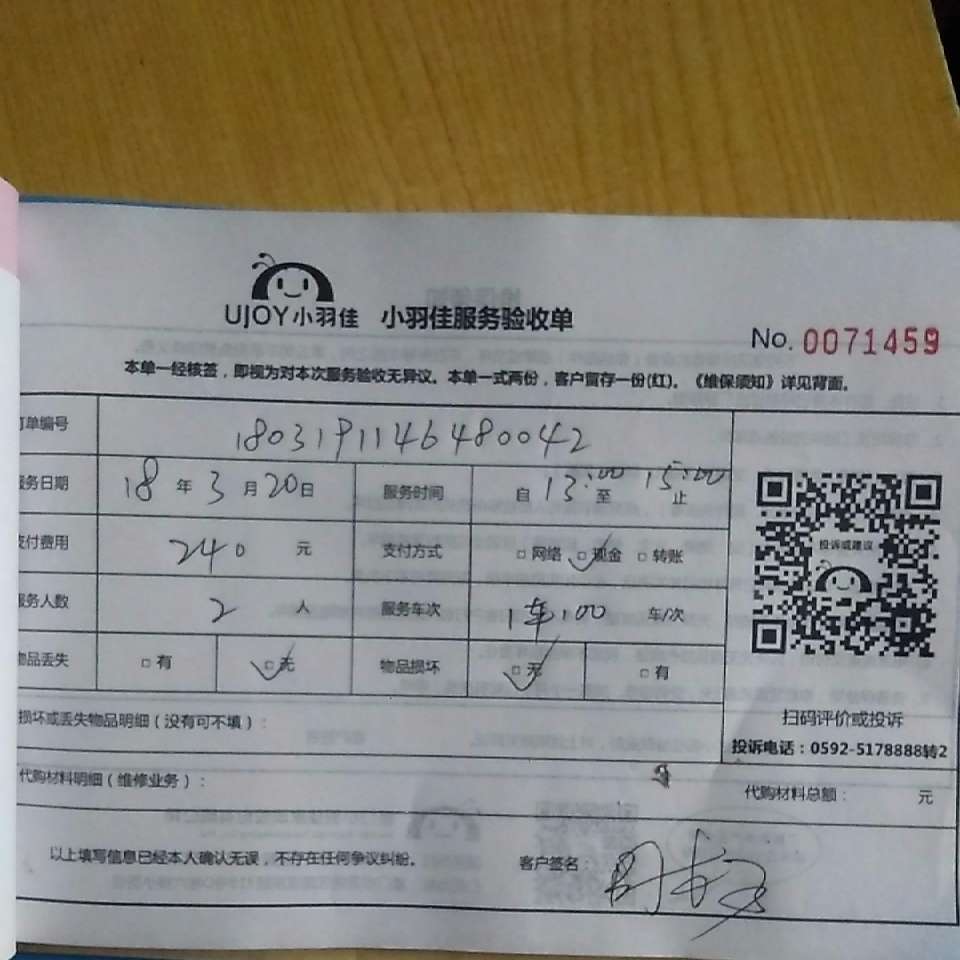 UJOY小羽佳 小羽佳服务验收单
No. 0071459
本单一经核签，即视为对本次服务验收无异议。本单一式两份，客户留存一份(红)。《维保须知》详见背面。
订单编号 1803191146480042
服务日期 18 年 3 月 20 日 服务时间 自 13:00 至 15:00 止
支付费用 240 元 支付方式 □ 网络 □ 现金 □ 转账
服务人数 2 人 服务车次 车/次
物品丢失 □ 有 □ 无 物品损坏 □ 无 □ 有
投诉或建议
扫码评价或投诉
投诉电话：0592-5178888转2
损坏或丢失物品明细（没有可不填）：
代购材料明细（维修业务）： 代购材料总额： 元
以上填写信息已经本人确认无误，不存在任何争议纠纷。 客户签名：